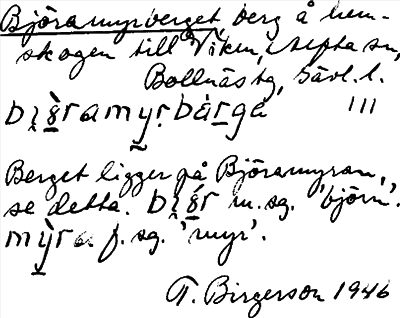 Björamyrberget berg å hem-
skogen till Viken, Alfta sn,
Bollnäs tg, Gävl. l.
bi̯ö̀ramyr̥bàrgə 111
Berget ligger på Björamyran,
se detta. bi̯ö́r m. sg. 'björn'.
mỳra f. sg. 'myr'.
T. Birgerson 1946